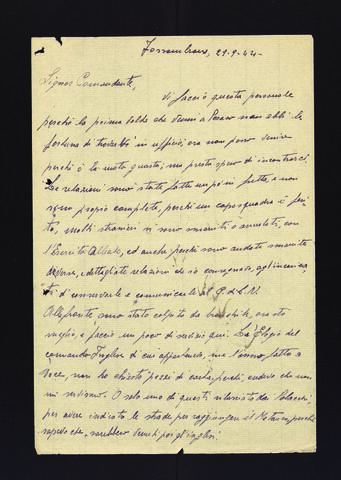 Fossombrone, 29-9-44-
Signor Comandante,
Vi faccio questa personale
perché la prima volta che venni a Pesaro non ebbi la
fortuna di trovarla in ufficio, ora non posso venire
perché ò la moto guasta, ma presto spero di incontrarci.
Le relazioni sono state fatte un pò in fretta e non
sono proprio complete, perché un caposquadra è feri
to, molti stranieri si sono smarriti o arruolati, con
l'Esercito Alleato, ed anche perché sono andate smarrite
diverse, e dettagliate relazioni che io consegnavo, agli incarica
ti di conservarle e comunicarle al C.d.L.N.
Al fronte sono stato colpito da bronchite, ora sto
meglio, e faccio un poco di servizio qui. Gli Elogi del
comando Inglese di cui appartenevo, me l'ànno fatto a
voce, non ho chiesto pezzi di carta, perché credevo che non
mi servissero. O solo uno di questi rilasciato dai Polacchi
per avere indicato le strade per raggiungere il Metauro, perché
sapevo che, sarebbero venuti poi gl'inglesi.